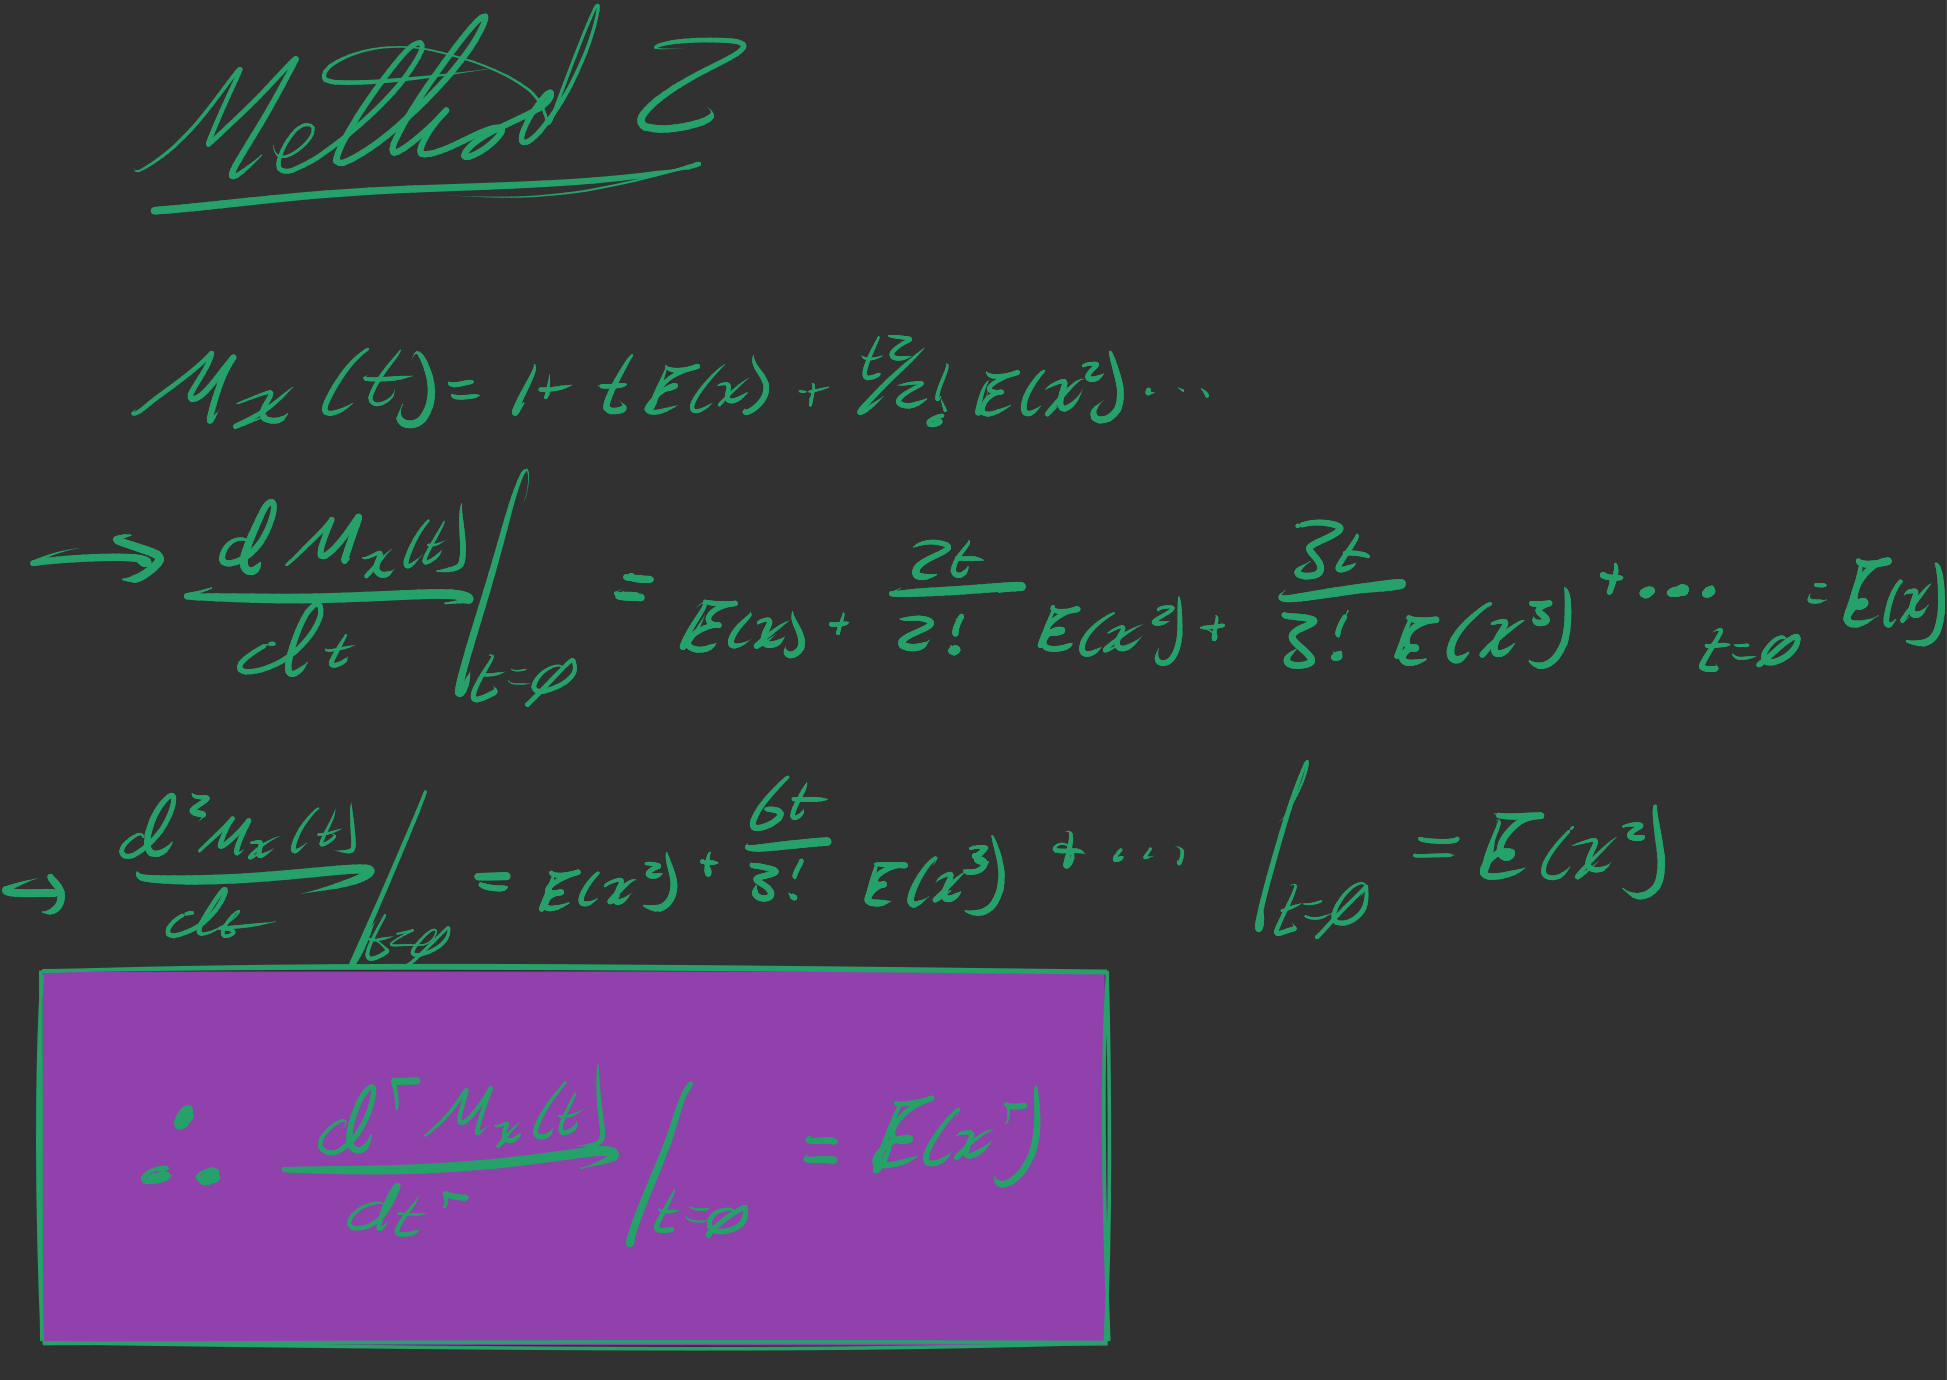 Method 2
Mx(t) = 1 + t E(x) + t²/2! E(x²) ...
→ d Mx(t) / dt |t=0 = E(x) + 2t/2! E(x²) + 3t/3! E(x³) + ... t=0 = E(x)
→ d² Mx(t) / dt |t=0 = E(x²) + 6t/3! E(x³) + ... |t=0 = E(x²)
∴ d^r Mx(t) / dt^r |t=0 = E(x^r)